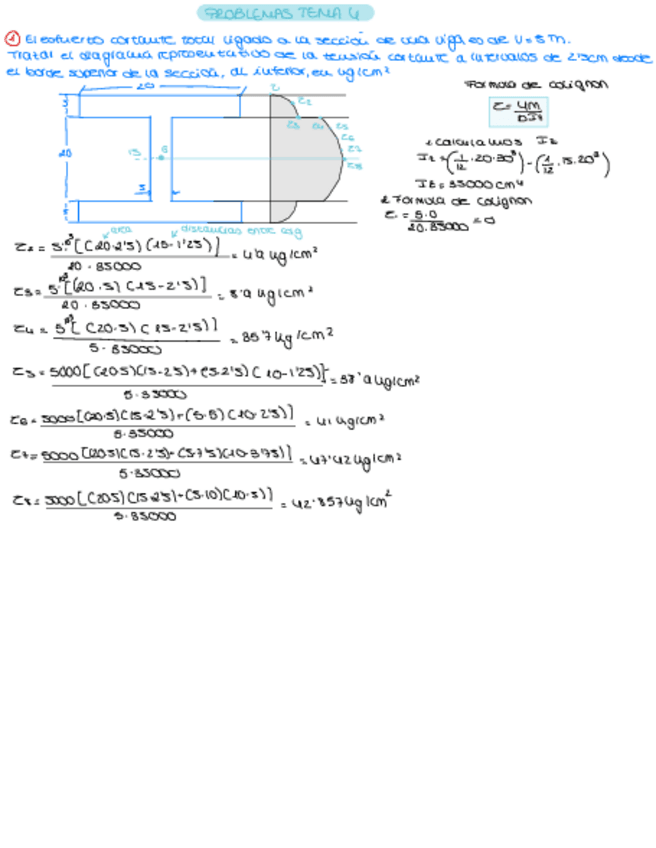 PROBLEMAS TEMA 4
① El esfuerzo cortante total ligado a la sección de una viga es de V = 5 m.
Trazar el diagrama representativo de la tensión cortante a intervalos de 2'5cm desde
el borde superior de la sección, al inferior, en kg/cm²
Formula de colignon
20
τ = UM / bIz
1 calculamos Iz
Iz = (1/12 · 20 · 30³) - (1/12 · 15 · 20³)
Iz = 35000 cm⁴
2 Formula de colignon
τ₁ = 5·0 / 20.35000 = 0
20
15
G
5
τ
τ₂
τ₃
τ₄
τ₅
τ₆
τ₇
τ₈
area
distancias entre
τ₂ = 5·10³ [(20·2'5)(15-1'25)] / 20·35000 = kg/cm²
τ₃ = 5·10³ [(20·5)(15-2'5)] / 20·35000 = 8'9 kg/cm²
τ₄ = 5·10³ [(20·5)(15-2'5)] / 5·35000 = 35'7 kg/cm²
τ₅ = 5000[(20·5)(15-2'5)+(5·2'5)(10-1'25)] / 5·35000 = kg/cm²
τ₆ = 5000[(20·5)(15-2'5)+(5·5)(10-2'5)] / 5·35000 = 41 kg/cm²
τ₇ = 5000[(20·5)(15-2'5)+(5·7'5)(10-3'75)] / 5·35000 = 47'42 kg/cm²
τ₈ = 5000[(20·5)(15-2'5)+(5·10)(10-5)] / 5·35000 = 42'857 kg/cm²